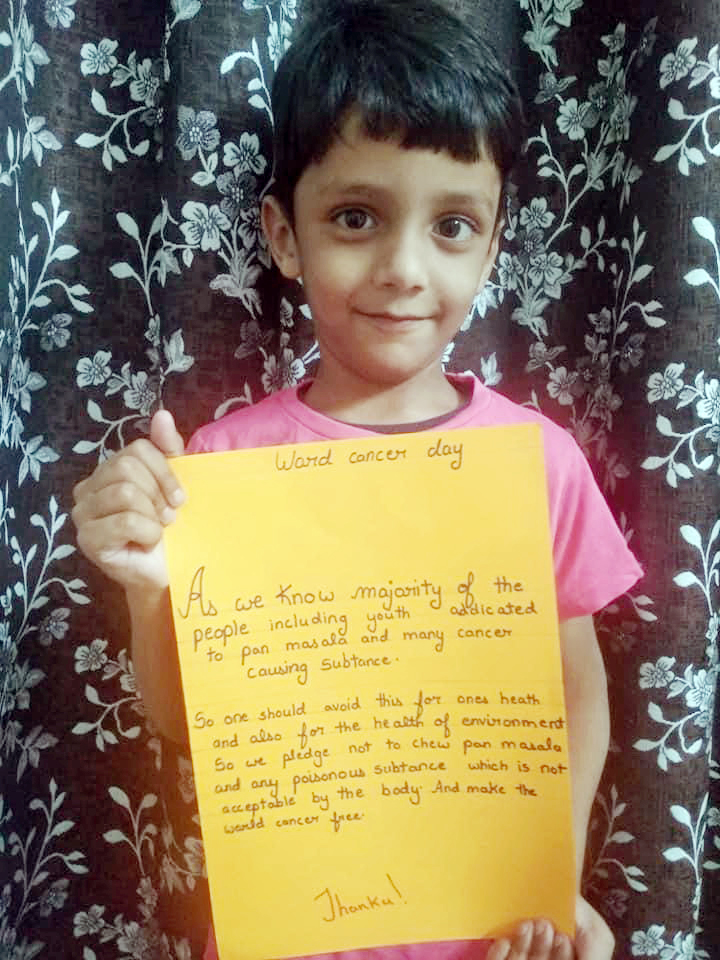 Ward cancer day
As we know majority of the
people including youth addicated
to pan masala and many cancer
causing subtance.
So one should avoid this for ones heath
and also for the health of environment
So we pledge not to chew pan masala
and any poisonous subtance which is not
acceptable by the body. And make the
world cancer free.
Thanku!